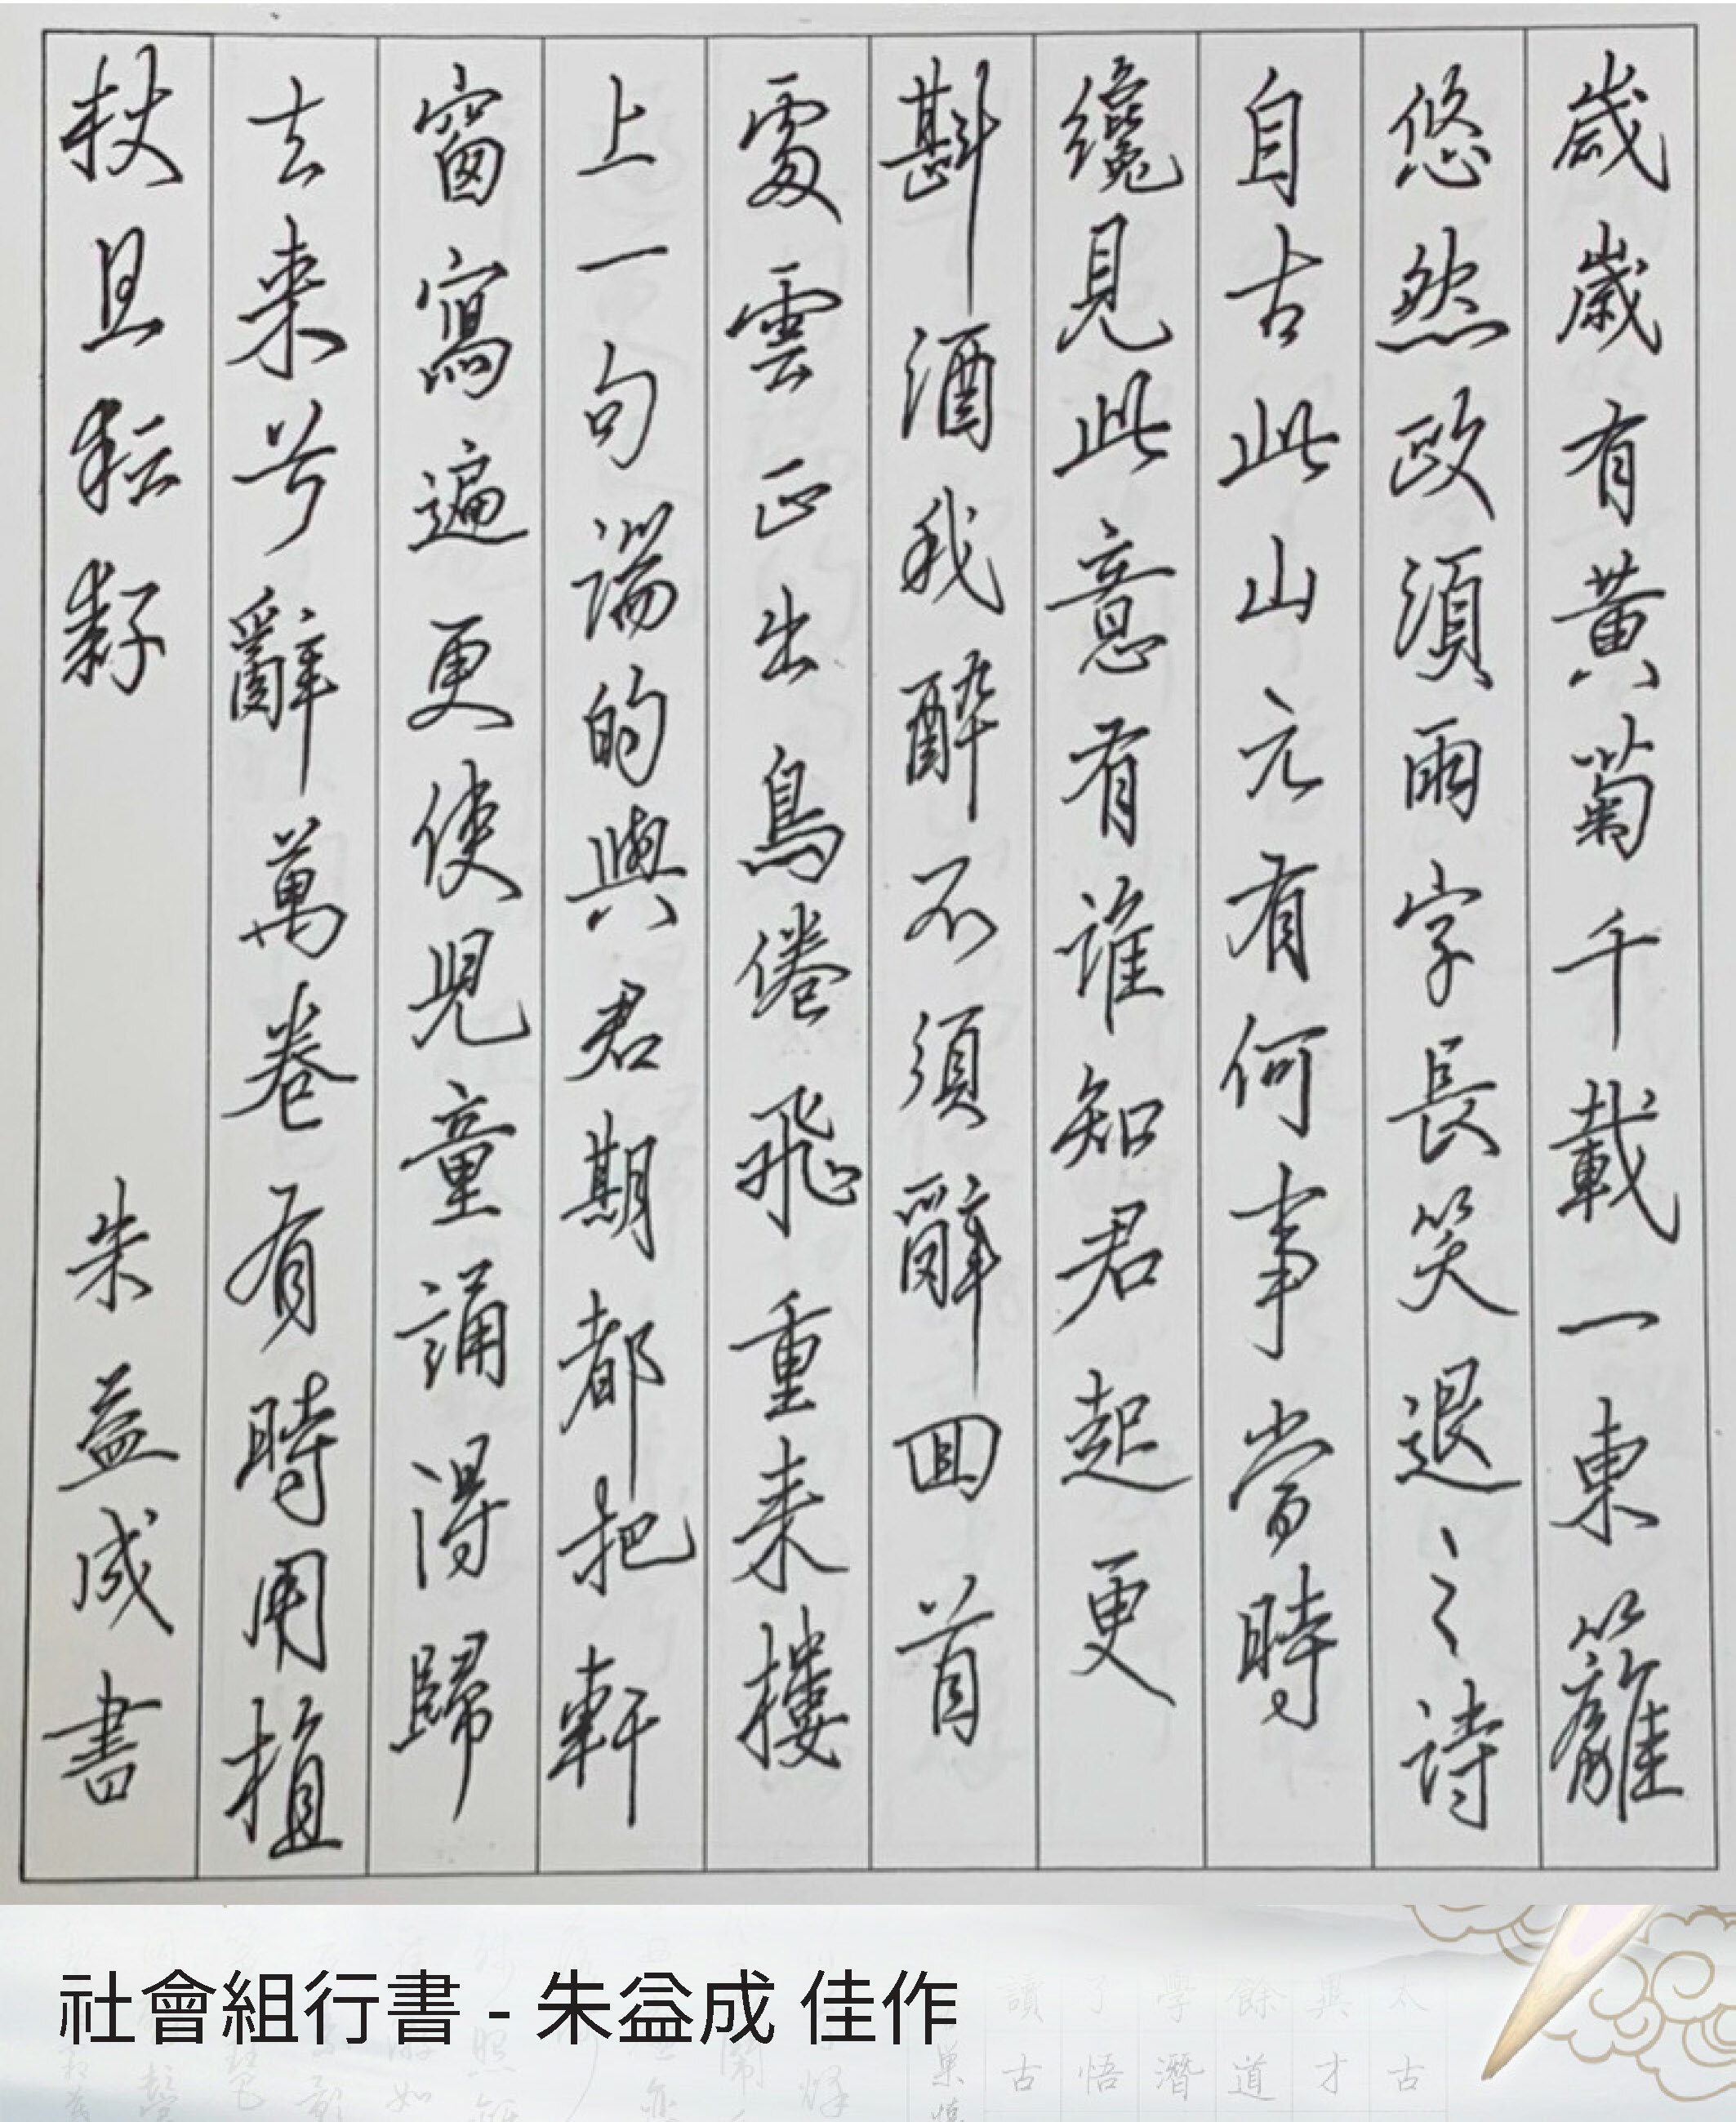 歲歲有黃菊千載一東籬
悠然政須兩字長笑退之詩
自古此山元有何事當時
纔見此意有誰知君起更
斟酒我醉不須辭回首
處雲正出鳥倦飛重来樓
上一句端的與君期都把軒
窗寫遍更使兒童誦得歸
去来兮辭萬卷有時用植
杖且耘耔
朱益成書
社會組行書 - 朱益成 佳作